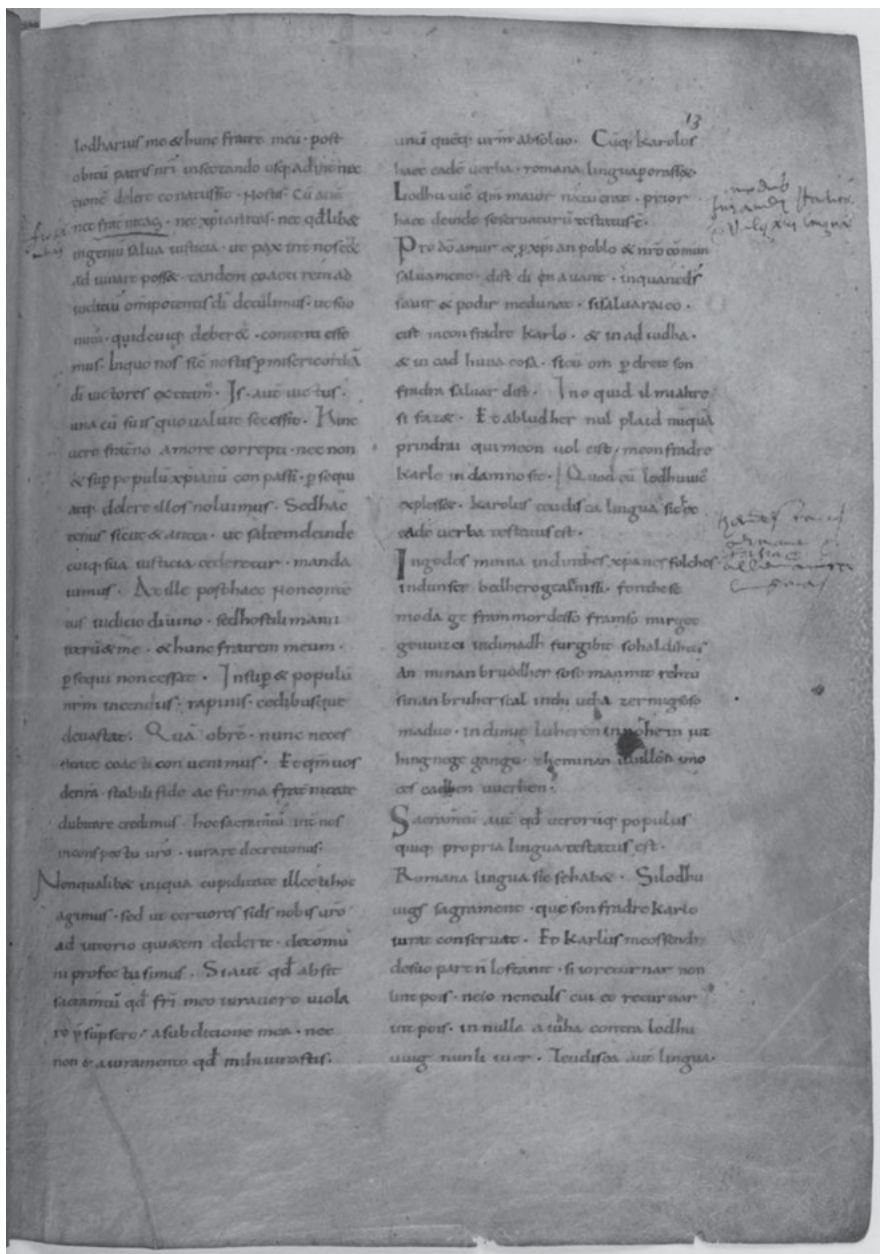 13
lodharius me & hunc fratrē meū · post
obitū patris nr̄i insectando usq; ad int nec
cionē delere conatus sit · Nostis · Cū autē
nec fraternitas · nec xp̄ianitas · nec qd̄ lib&
ingeniū salua iusticia · ut pax int nos ēē&
ad iuuare poss& · tandem coacti rem ad
iudiciū om̄ipotentis dī detulimus · ut suo
nutu · quid cuiq; deber&· · contenti esse
mus · Inquo nos sic nostis p misericordiā
dī uictores extitim · Is · aut uictus ·
una cū suis quo ualuit secessit · Hinc
uero fraterno amore correpti · nec non
& sup populū xp̄ianū conpassi · psequi
atq; delere illos noluimus · Sed hac
tenus sicut & antea · ut saltem deinde
cuiq; sua iusticia cederetur · manda
uimus · At ille post haec non conten
tus iudicio diuino · sed hostili manu
iterū & me · & hunc fratrem meum ·
psequi non cessat · Insup & populū
nrm incendiis · rapinis · cedibusque
deuastat · Quā obrē · nunc neces
sitate coacti conuenimus · Et qm̄ uos
de nra · stabili fide ac firma fraternitate
dubitare credimus · hoc sacramtū int nos
inconspectu uro · iurare decreuimus ·
Non qualib& iniqua cupiditate illecti hoc
agimus · sed ut certiores si d̄s nobis uro
ad iutorio quietem dederit · decomū
ni profectu simus · Si aut qd̄ absit
sacramtū qd̄ fri meo iurauero uiola
re psūpsero · a subdicione mea · nec
non & a iuramento qd̄ mihi iurastis ·
unū quēq; urm absoluo · Cūq; karolus
haec eadē uerba · romana lingua porass& ·
Lodhuuic qm̄ maior natu erat · prior
haec deinde se seruaturū testatus ē ·
Pro dō amur & p xp̄ian poblo & nr̄o cōmun
saluament · dist di ēn auant · in quant d̄s
sauir & podir me dunat · si saluarai eo ·
cist meon fradre Karlo · & in ad iudha ·
& in cad huna cosa · sicū om p dreit son
fradra saluar dist · Ino quid il mi altre
si faz& · Et ab ludher nul plaid nūquā
prindrai qui meon uol cist · meon fradre
Karle in damno sit · Quod cū lodhuuic
expless& · karolus teudisca lingua sic ec
eadē uerba testatus est ·
In godes minna ind in thes xpanes folches
ind unser bedhero gealtnissi · fon these
moda ge frammordesso framso mir got
geuuizci indi madh furgibit so hald ih tes
an minan bruodher soso man mit rehtu
sinan bruher scal inthi utha zer mig soso
maduo · indi mit luheren in nohein iut
hing nege gango · zhe minan uuillon imo
ces cadhen uuerhen ·
Sacramtū aut qd̄ utrorūq; populus
quiq; propria lingua testatus est ·
Romana lingua sic se hab& · Si lodhu
uigs sagrament · que son fradre Karlo
iurat conseruat · Et Karlus meo sendr
de suo part n̄ lostanit · si io returnar non
lint pois · ne io ne neuls cui eo returnar
int pois · in nulla aiuha contra lodhu
uuig nun li iuer · Teudisca aut lingua ·